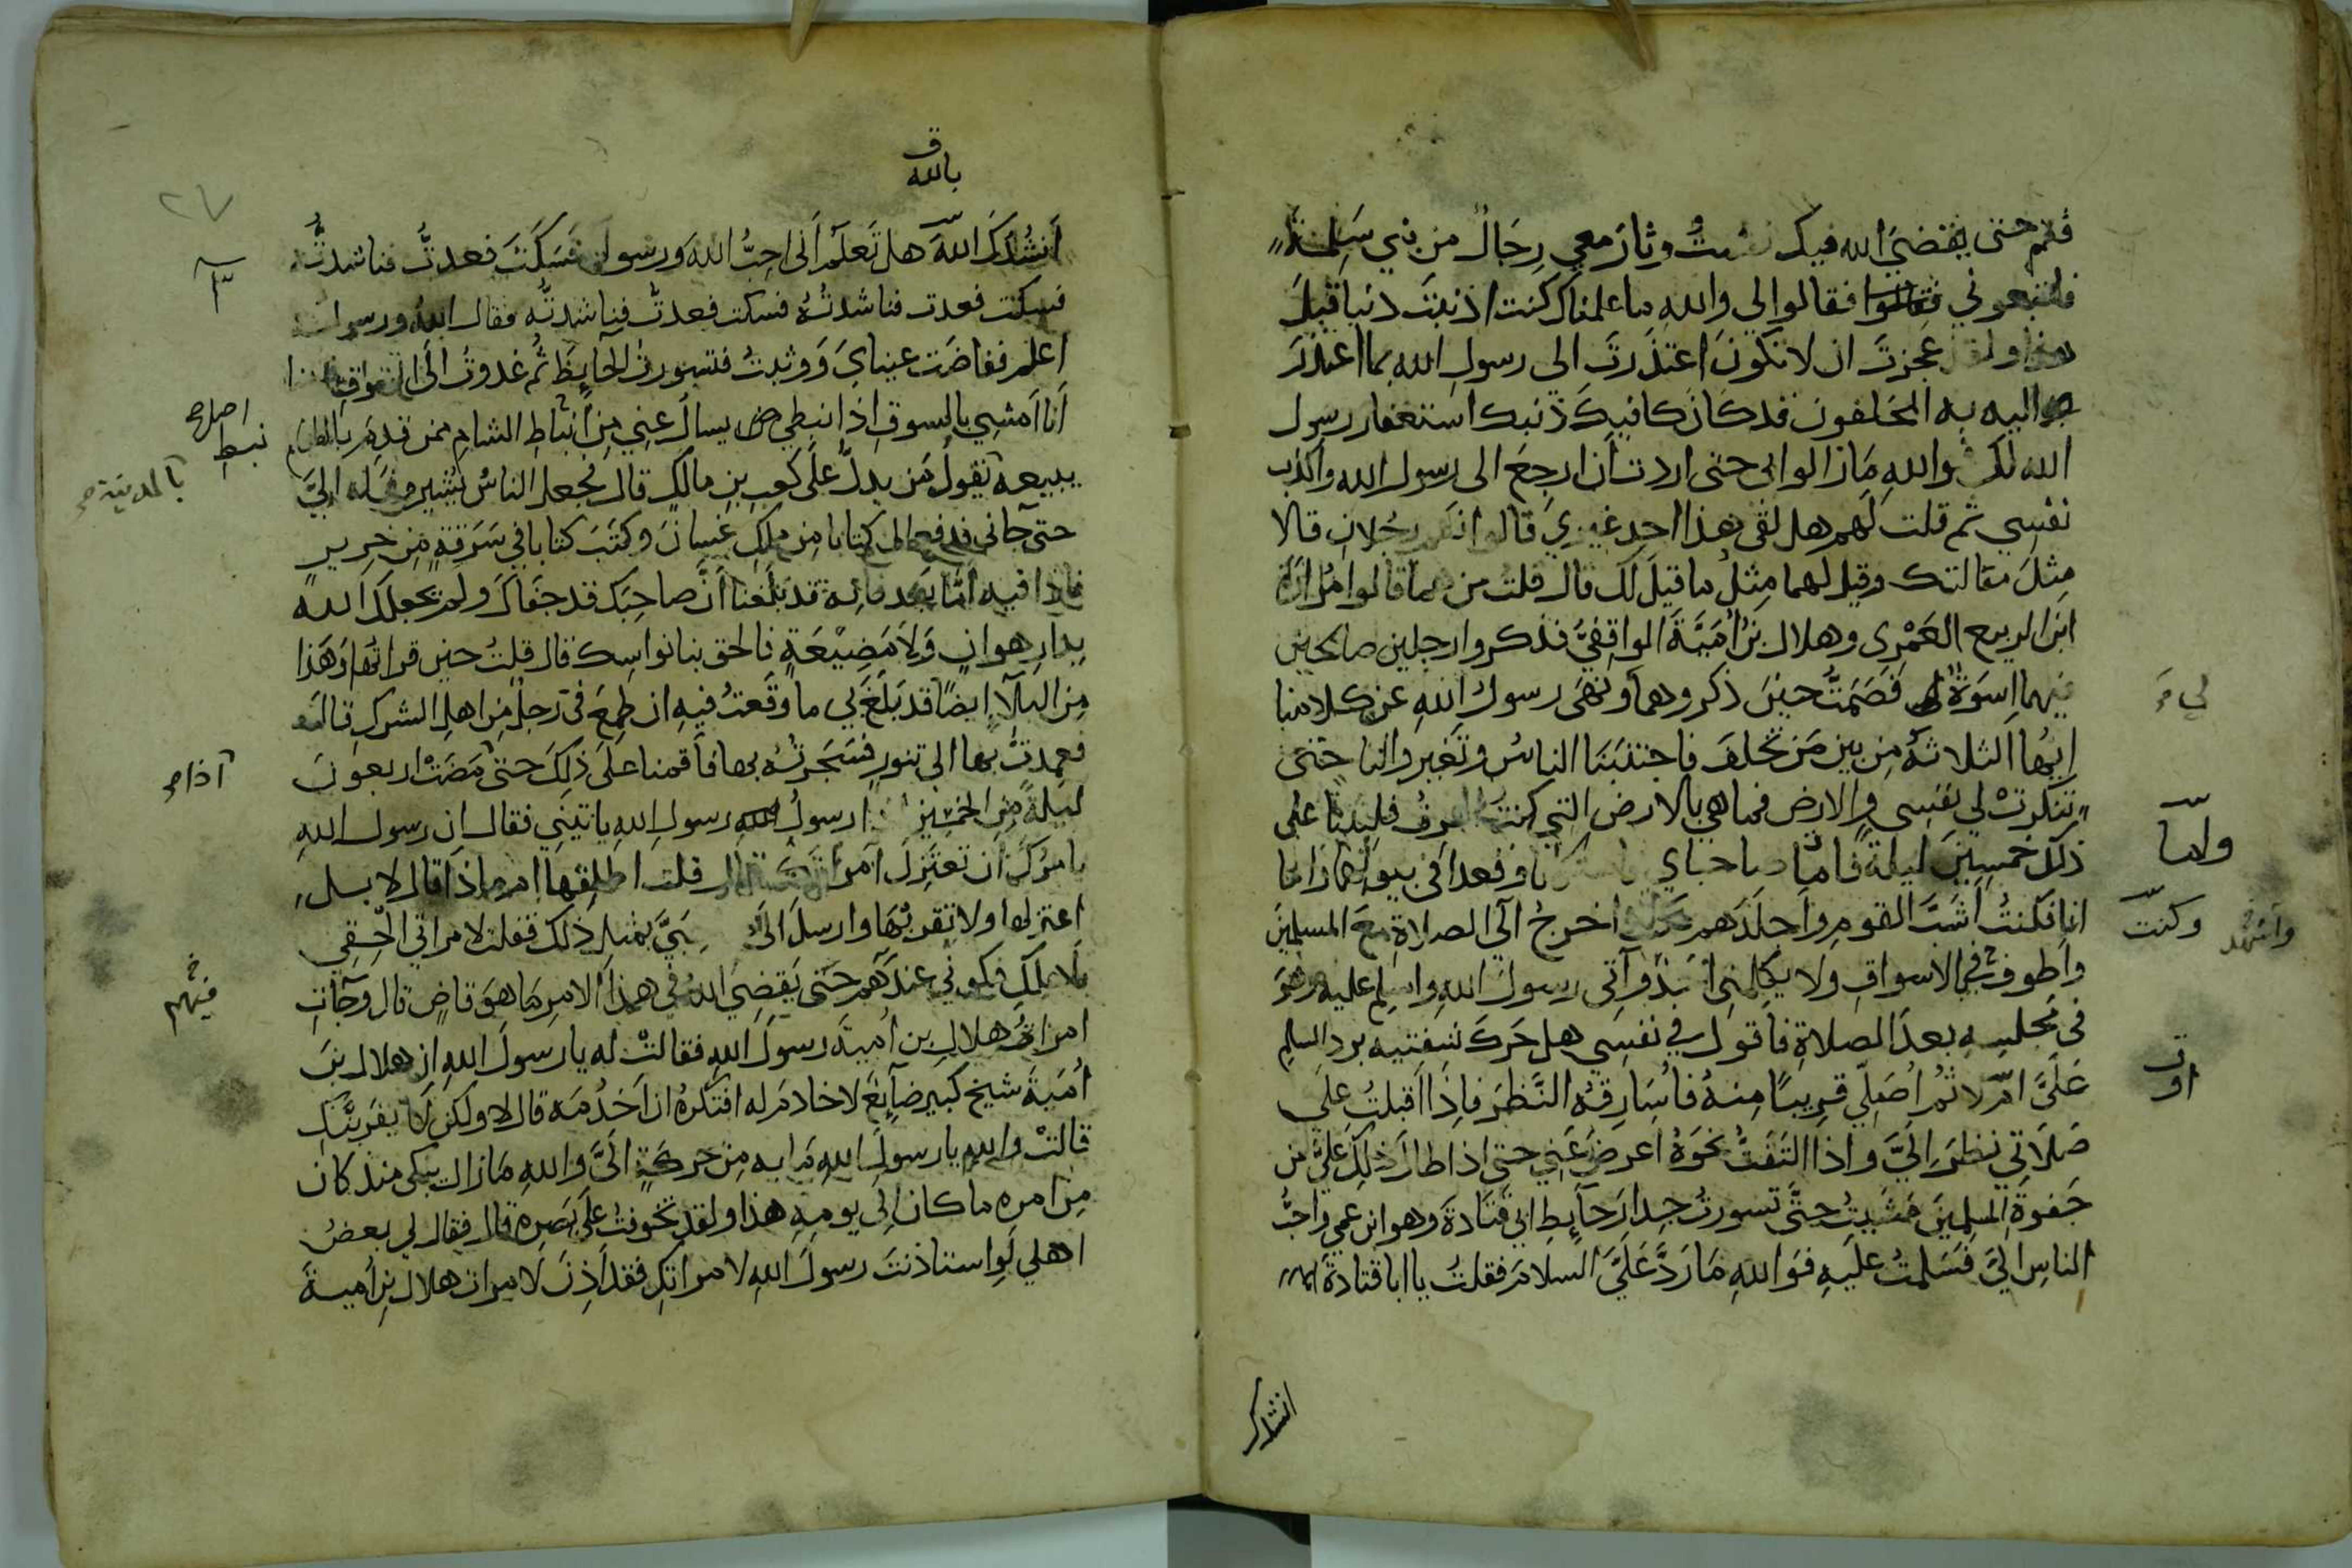 فقم حتى يقضي الله فيك فقمتُ وثارَ معي رجالٌ من بني سَلِمة
فاتبعوني فقالوا لي والله ما علمناك كنت اذنبتَ ذنبا قبلَ
هذا ولقد عجزتَ ان لا تكونَ اعتذرتَ الى رسول الله بما اعتذرَ
اليه به المخلفون قد كان كافيكَ ذنبك استغفار رسول
الله لك فوالله مَا زالوا بي حتى اردت أن ارجعَ الى رسول الله واكذب
نفسي ثم قلت لهم هل لقي هذا احد غيري قالوا نعم رجلان قالا
مثلَ مقالتك وقيل لهما مِثلُ ما قيلَ لك قال قلتُ من هما قالوا مُرارة
ابن الربيع العَمْري وهلال بنُ أُمَيَّةَ الواقِفيُّ فذكروا رجلين صالحين
فيهما اسوةٌ فمضيتُ حينَ ذكروهما ونهى رسولُ اللهِ عن كلامنا
لي
ايُّها الثلاثةُ مِن بين مَن تخلفَ فاجتنبَنَا الناسُ وتغيروا لنا حتى
تنكرتْ لي نفسي والارض فما هي بالارض التي كنتُ اعرفُ فلبثنا على
ذلكَ خمسينَ ليلةً فامَّا صاحباي فاستكانا وقعدا في بيوتهما واما
ولما
انا فكنتُ اشبَّ القوم واجلَدَهم فكنت اخرجُ الى الصلاة معَ المسلمينَ
وكنت
واشهد
واطوف في الاسواقِ ولا يكلمني احَدٌ وآتي رسولَ اللهِ واسلم عليه وهوَ
في مجلسه بعدَ الصلاةِ فاقول في نفسي هل حَرك شفتيه برد السلم
عَلَيَّ امْ لا ثُم اُصَلِّي قريبًا مِنهُ فاُسَارِقهُ النَّظرَ فاِذا اقبلتُ على
او
صَلاتي نظرَ الَيَّ واذا التفتُّ نحوَهُ اعرضَ عَنِّي حتى اذا طالَ ذلكَ عليَّ من
جَفوةِ المسلمينَ مَشَيتُ حتَّى تسورتُ جِدارَ حآيطِ ابي قتَادةَ وهو ابن عمي واحبُّ
الناسِ اليَّ فسَلمتُ عليهِ فوَاللهِ مَا رَدَّ عَلَيَّ السلامَ فقلتُ يا ابا قتادةَ
انشدك
بالله
أنشُدكَ اللهَ هل تَعلَمُ اَنّي احِبُّ اللهَ ورسوله فسَكَتَ فعدتُّ فناشدتُّه
فسكت فعدت فناشدتُهُ فسكت فعدتُ فناشدتُه فقال اللهُ ورسوله
اعلم ففاضَت عينايَ وَوثبتُ فتسورتُ الحآيطَ ثُم غدوتُ الى السوق فبينا
اَنا اَمشِي بالسوقِ اذا نبطي يسال عنِي مِن اَنباطِ الشام ممن قدِمَ بالطعام
نبط
بالمدينة
يبيعه يقولُ مَن يدلُّ علَى كعبِ بنِ مالكٍ قال فجعل الناسُ يُشيرونَ له اليَّ
حتى جآني فدفع الي كتابا مِن ملكِ غسانَ وكتبَ كتابا في سَرَقةٍ مِن حَرير
فاذا فيه امّا بعد فانه قد بَلَغنا اَنَّ صاحِبَك قد جفاكَ ولم يجعلكَ الله
بدارِ هوانٍ وَلا مَضِيْعَةٍ فالحق بنا نواسِك قال قلتُ حين قراتُها وَهَذا
مِنَ البلآءِ ايضًا قد بَلَغَ بي ما وقَعتُ فيه ان طمِعَ فيَّ رجلٌ مِن اهلِ الشركِ قال
فعمِدتُ بها الى تنورٍ فسَجَرتُهُ بها فاَقمنا علَى ذلِكَ حتى مَضَتْ اربعونَ
اذا
ليلةً مِنَ الخمسين اذا رسولُ رسولِ اللهِ ياتيني فقال ان رسول اللهِ
يامرُكَ اَن تعتزِلَ امراتك قال قلت اطلقها ام ماذا قال لا بل
اعتزلها ولا تقربْها وارسلَ الى صاحبَيَّ بمثل ذلك فقلت لامراتي الحقِي
باهلكِ فكوني عندَهم حتى يَقضِيَ اللهُ في هذا الامرِ مَا هوَ قاضٍ قال وجآت
فيهم
امراةُ هلالِ بن اُميةَ رسولَ اللهِ فقالتْ له يا رسولَ اللهِ ان هلال بنَ
اُميةَ شيخ كبير ضآيعٌ لا خادمَ له افتكرهُ ان اَخدُمَه قال لا ولكن لا يقربَنَّكِ
قالتْ والله يا رسولَ اللهِ مَا به مِن حَركةٍ الَيَّ واللهِ مَا زال يبكي منذ كان
مِن امره ما كان الى يومِهِ هذا ولقد تخوفتُ علَى بَصَرِه قال فقال لي بعضُ
اهلي لَوِ استاذنتَ رسولَ اللهِ لامراتكِ فقد اَذِنَ لامراة هلال بنِ اُميةَ